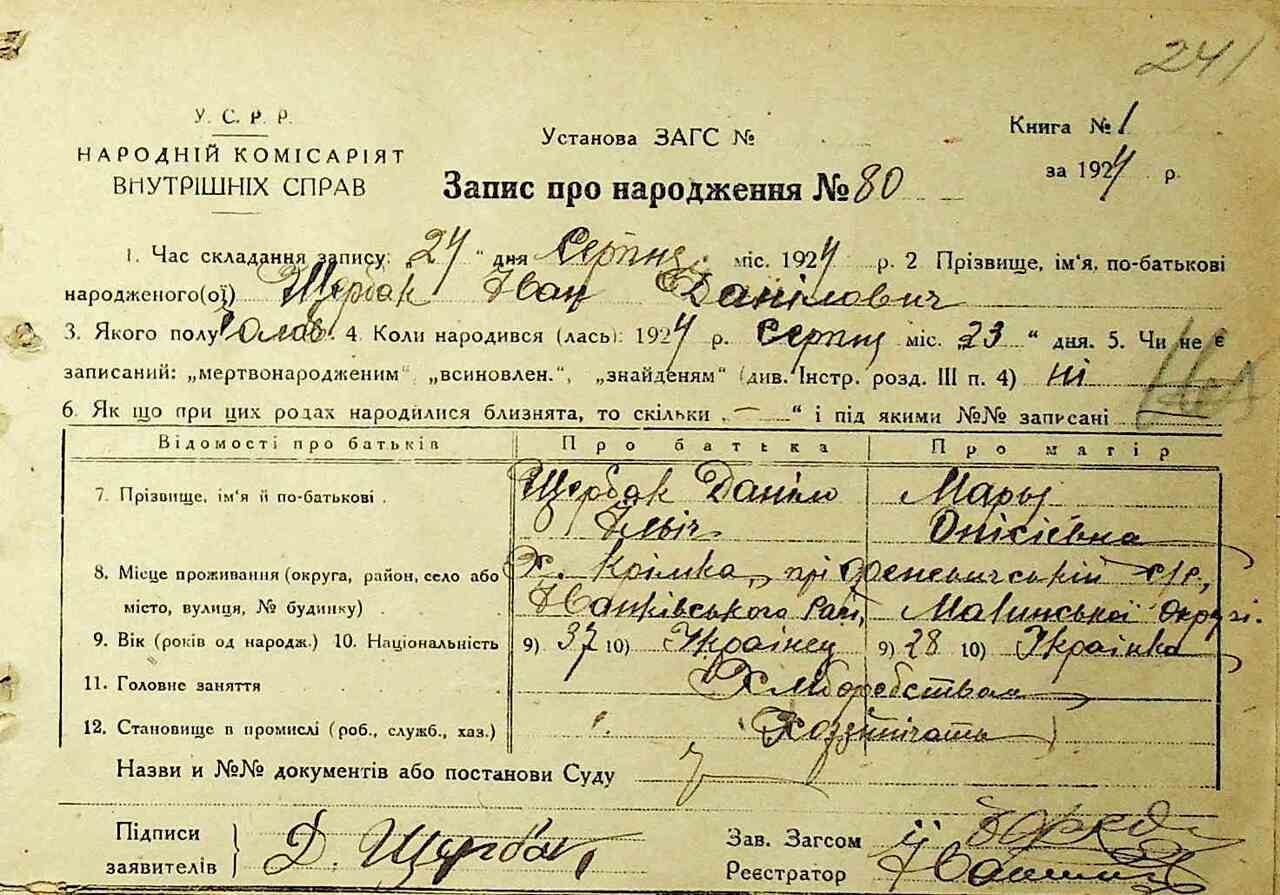 241
У. С. Р. Р.
НАРОДНІЙ КОМІСАРІЯТ
ВНУТРІШНІХ СПРАВ
Установа ЗАГС №
Книга № 1
за 1924 р.
Запис про народження № 80
1. Час складання запису: 24 " дня Серпня міс. 1924 р. 2 Прізвище, ім'я, по-батькові
народженого(ої) Щербак Іван Данілович
3. Якого полу 4. Коли народився (лась): 1924 р. Серпня міс. 23 " дня. 5. Чи не є
записаний: „мертвонародженим", „всиновлен.", „знайденям" (див. Інстр. розд. III п. 4) ні
6. Як що при цих родах народилися близнята, то скільки „ — " і під якими №№ записані
Відомості про батьків Про батька Про матір
7. Прізвище, ім'я й по-батькові . Щербак Даніло Марья
Ільіч Онісієвна
8. Місце проживання (округа, район, село або Х. Крімка, прі сіс,
місто, вулиця, № будинку) Іванківського Рай, Малинської Округі.
9. Вік (років од народж.) 10. Національність 9) 37 10) Українец 9) 28 10) Українка
11. Головне заняття Хліборобством
12. Становище в промислі (роб., служб., хаз.)
Назви и №№ документів або постанови Суду
Підписи
заявителів
Д. Щербак
Зав. Загсом
Реєстратор